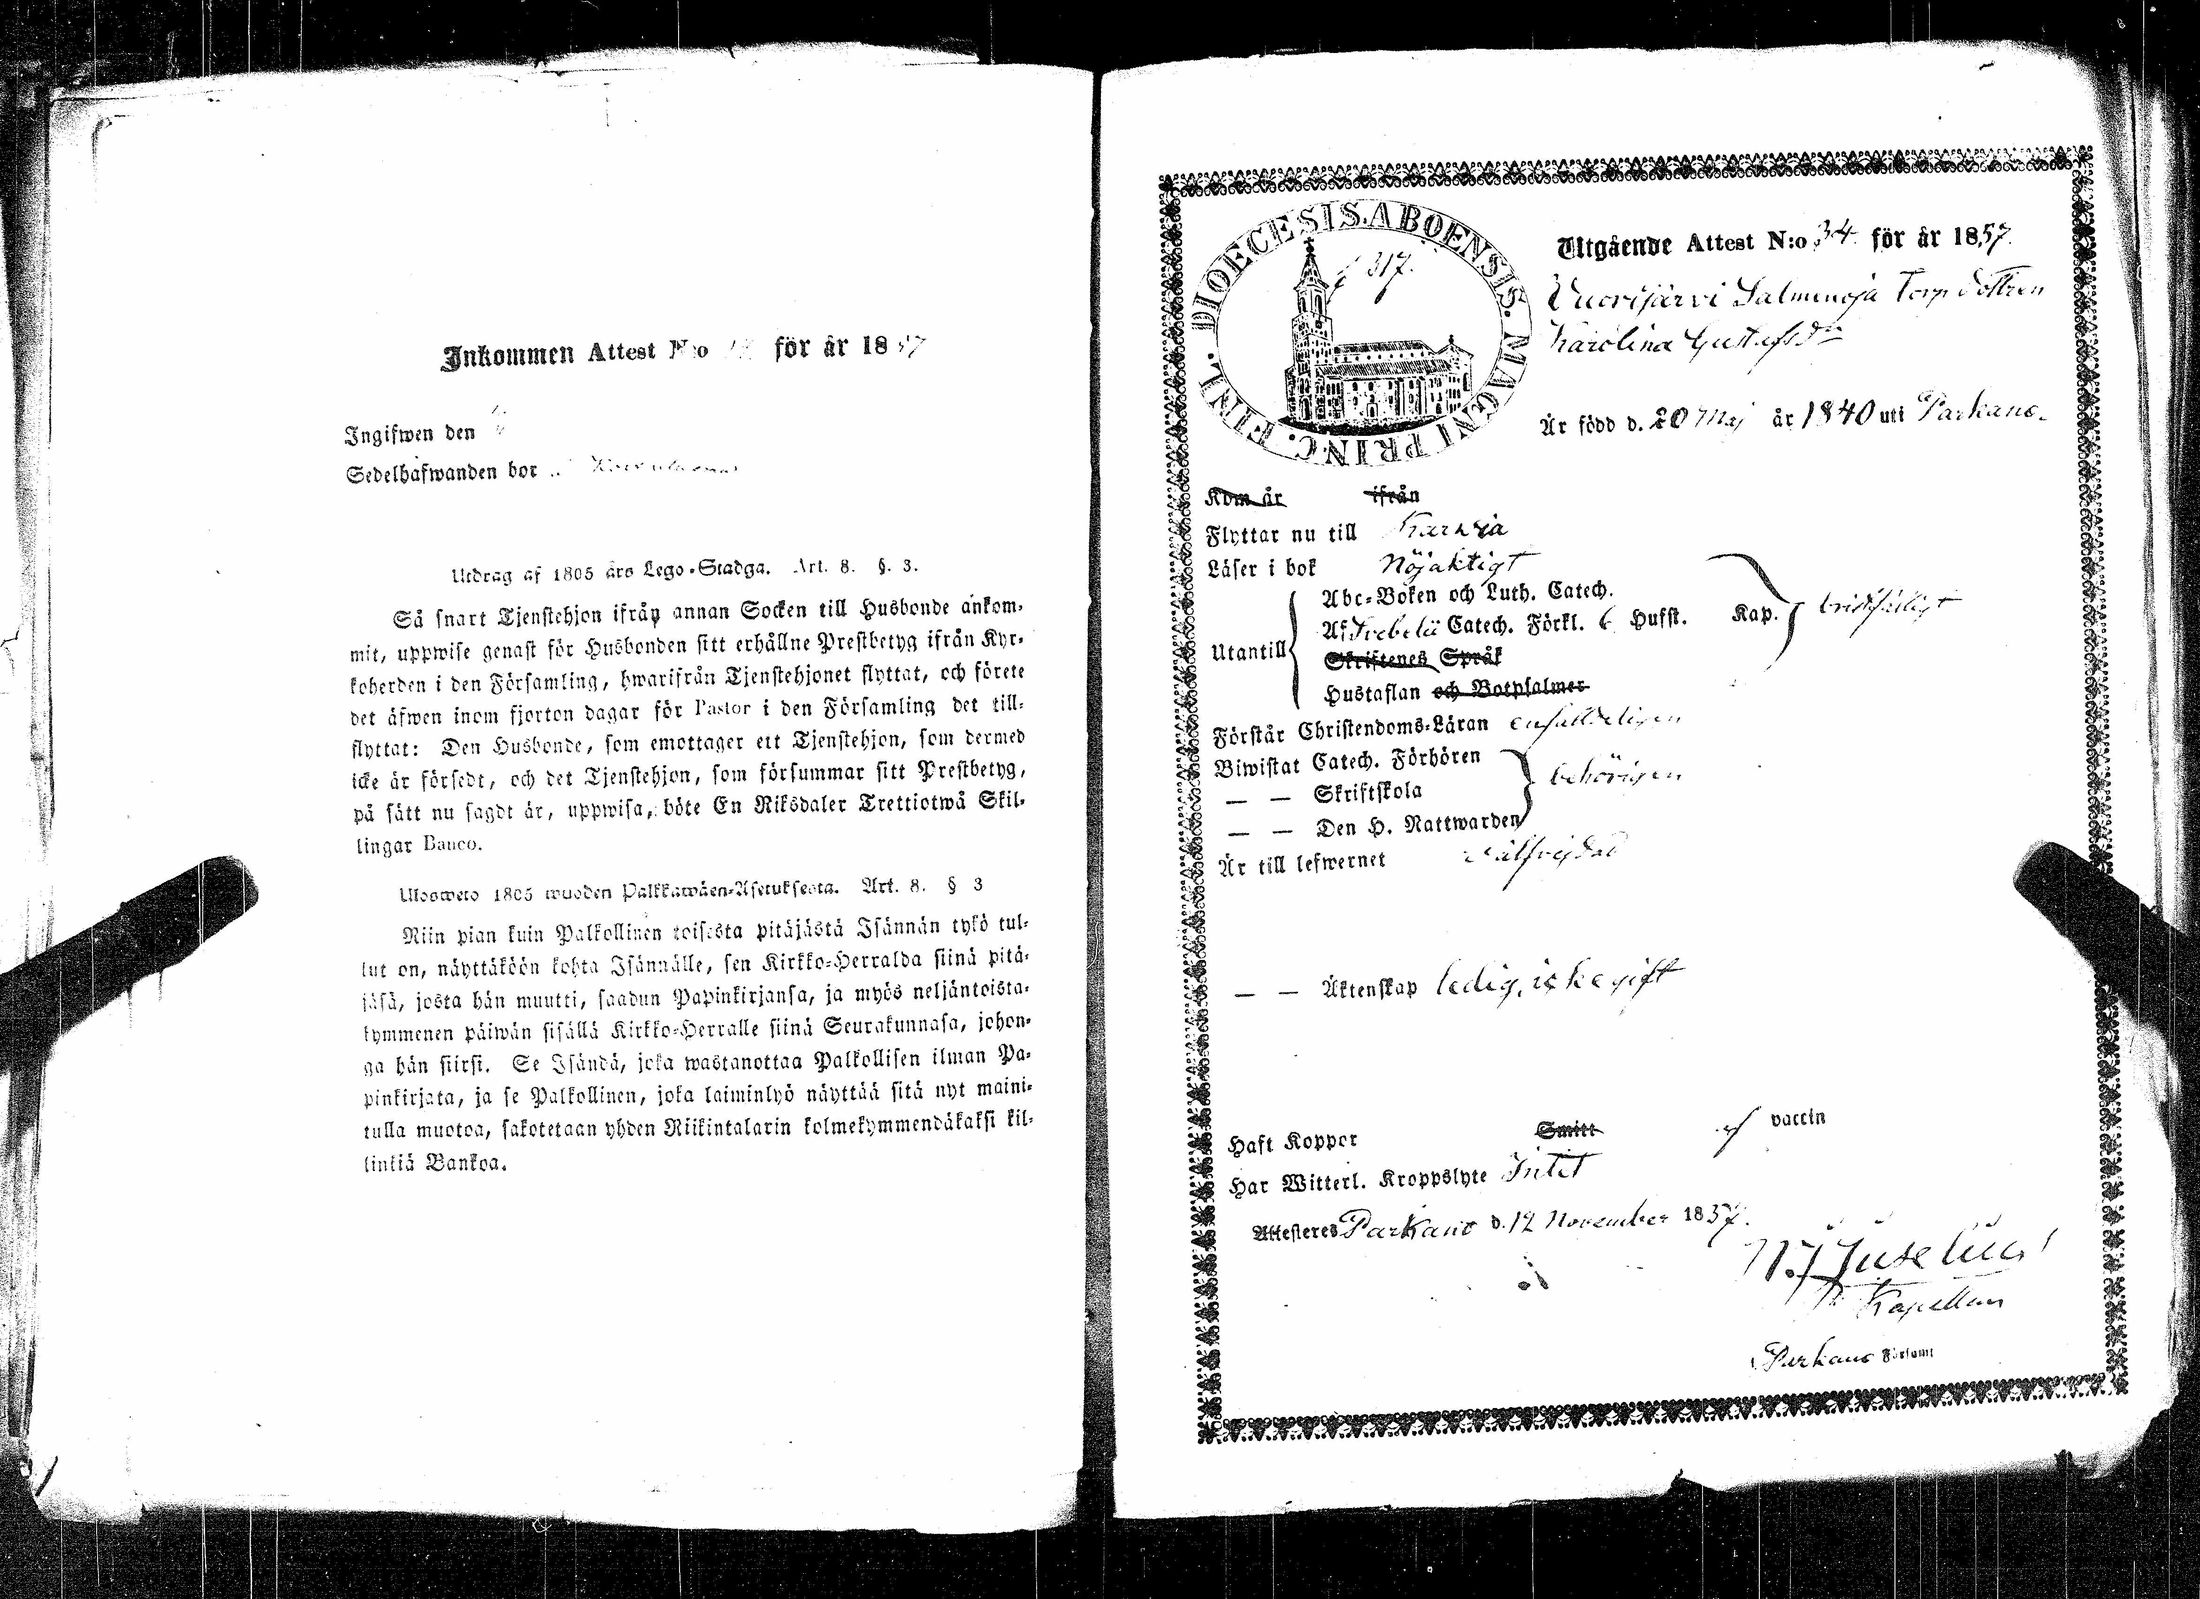 Inkommen Attest N:o för år 1857
Ingifwen den
Sedelhafwanden bor
Utdrag af 1805 års Lego-Stadga. Art. 8. §. 3.
Så snart Tjenstehjon ifrån annan Socken till Husbonde ankom-
mit, uppwise genast för Husbonden sitt erhållne Prestbetyg ifrån Kyr-
koherden i den Församling, hwarifrån Tjenstehjonet flyttat, och förete
det äfwen inom fjorton dagar för Pastor i den Församling det till-
flyttat: Den Husbonde, som emottager ett Tjenstehjon, som dermed
icke är försedt, och det Tjenstehjon, som försummar sitt Prestbetyg,
på sätt nu sagdt är, uppwisa, böte En Riksdaler Trettiotwå Skil-
lingar Banco.
Ulosweto 1805 wuoden Palkkawäen-Asetuksesta. Art. 8. § 3
Niin pian kuin Palkollinen toisesta pitäjästä Isännän tykö tul-
lut on, näyttäköön kohta Isännälle, sen Kirkko-Herralda siinä pitä-
jäsä, josta hän muutti, saadun Papinkirjansa, ja myös neljäntoista-
kymmenen päiwän sisällä Kirkko-Herralle siinä Seurakunnasa, johon-
ga hän siirsi. Se Isändä, joka wastanottaa Palkollisen ilman Pa-
pinkirjata, ja se Palkollinen, joka laiminlyö näyttää sitä nyt maini-
tulla muotoa, sakotetaan yhden Riikintalarin kolmekymmendäkaksi kil-
linkiä Bankoa.
DIOECESIS. ABOENSIS. MAGNI PRINC. FINL.
317.
Utgående Attest N:o 34. för år 1857.
Vuorijärvi Salmenoja Torp dottren
Karolina Gustafsdr
Är född d. 20 Maj år 1840 uti Parkano.
Kom år ifrån
Flyttar nu till Karvia
Läser i bok Nöjaktigt
Utantill
Abc-Boken och Luth. Catech.
Af Svebelii Catech. Förkl. 6 Hufst. Kap.
Skriftenes Språk
Hustaflan och Botpsalmer
bristfälligt
Förstår Christendoms-Läran enfaldeligen
Biwistat Catech. Förhören
— — Skriftskola
— — Den H. Nattwarden
behörigen
Är till lefwernet välfrejdad
— — Äktenskap ledig, icke gift
Haft Koppor Smitt af vaccin
Har Witterl. Kroppslyte Intet
Attesteres Parkano d. 12 November 1857.
N. J. Juselius
Kapellan
i Parkano Församl